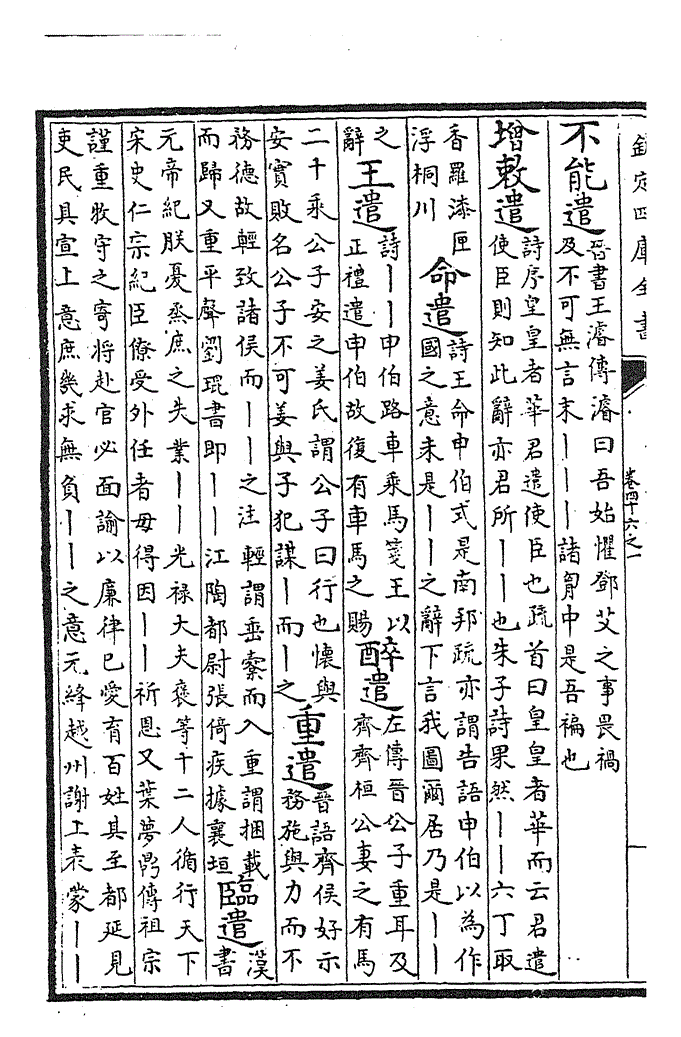 欽定四庫全書 卷四十六之一
不能遣 晉書王濬傳濬曰吾始懼鄧艾之事畏禍
及不可無言末丨丨丨諸胷中是吾褊也
增敕遣 詩序皇皇者華君遣使臣也疏首曰皇皇者華而云君遣
使臣則知此辭亦君所丨丨也朱子詩果然丨丨六丁取
香羅漆匣
浮桐川
命遣 詩王命申伯式是南邦疏亦謂告語申伯以為作
國之意未是丨丨之辭下言我圖爾居乃是丨丨
之
辭
王遣 詩丨丨申伯路車乘馬箋王以
正禮遣申伯故復有車馬之賜
醉遣 左傳晉公子重耳及
齊齊桓公妻之有馬
二十乘公子安之姜氏謂公子曰行也懷與
安實敗名公子不可姜與子犯謀丨而丨之
重遣 晉語齊侯好示
務施與力而不
務德故輕致諸侯而丨丨之注輕謂垂橐而入重謂捆載
而歸又重平聲劉琨書即丨丨江陶都尉張倚疾據襄垣
臨遣 漢
書
元帝紀朕憂烝庶之失業丨丨光禄大夫褒等十二人循行天下
宋史仁宗紀臣僚受外任者毋得因丨丨祈恩又葉夢鼎傳祖宗
謹重牧守之寄將赴官必面諭以廉律已愛育百姓其至都延見
吏民具宣上意庶幾求無負丨丨之意元絳越州謝上表蒙丨丨